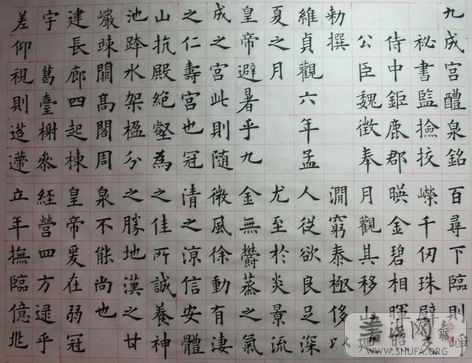 九成宮醴泉銘
秘書監撿挍
侍中鉅鹿郡
公臣魏徵奉
勅撰
維貞觀六年孟
夏之月
皇帝避暑乎九
成之宮此則隨
之仁壽宮也冠
山抗殿絕壑為
池跨水架楹分
巖竦闕高閣周
建長廊四起棟
宇葛臺榭參
差仰視則迢遰
百尋下臨則崢
嶸千仞珠壁
暎金碧相暉照
月觀其移山
澗窮泰極侈以
人從欲良足深
尤至於炎景流
金無鬱蒸之氣
微風徐動有凄
清之涼信安體
之佳所誠養神
之勝地漢之甘
泉不能尚也
皇帝爰在弱冠
經營四方逮乎
立年撫臨億兆
書法网
www.SHUFA.com